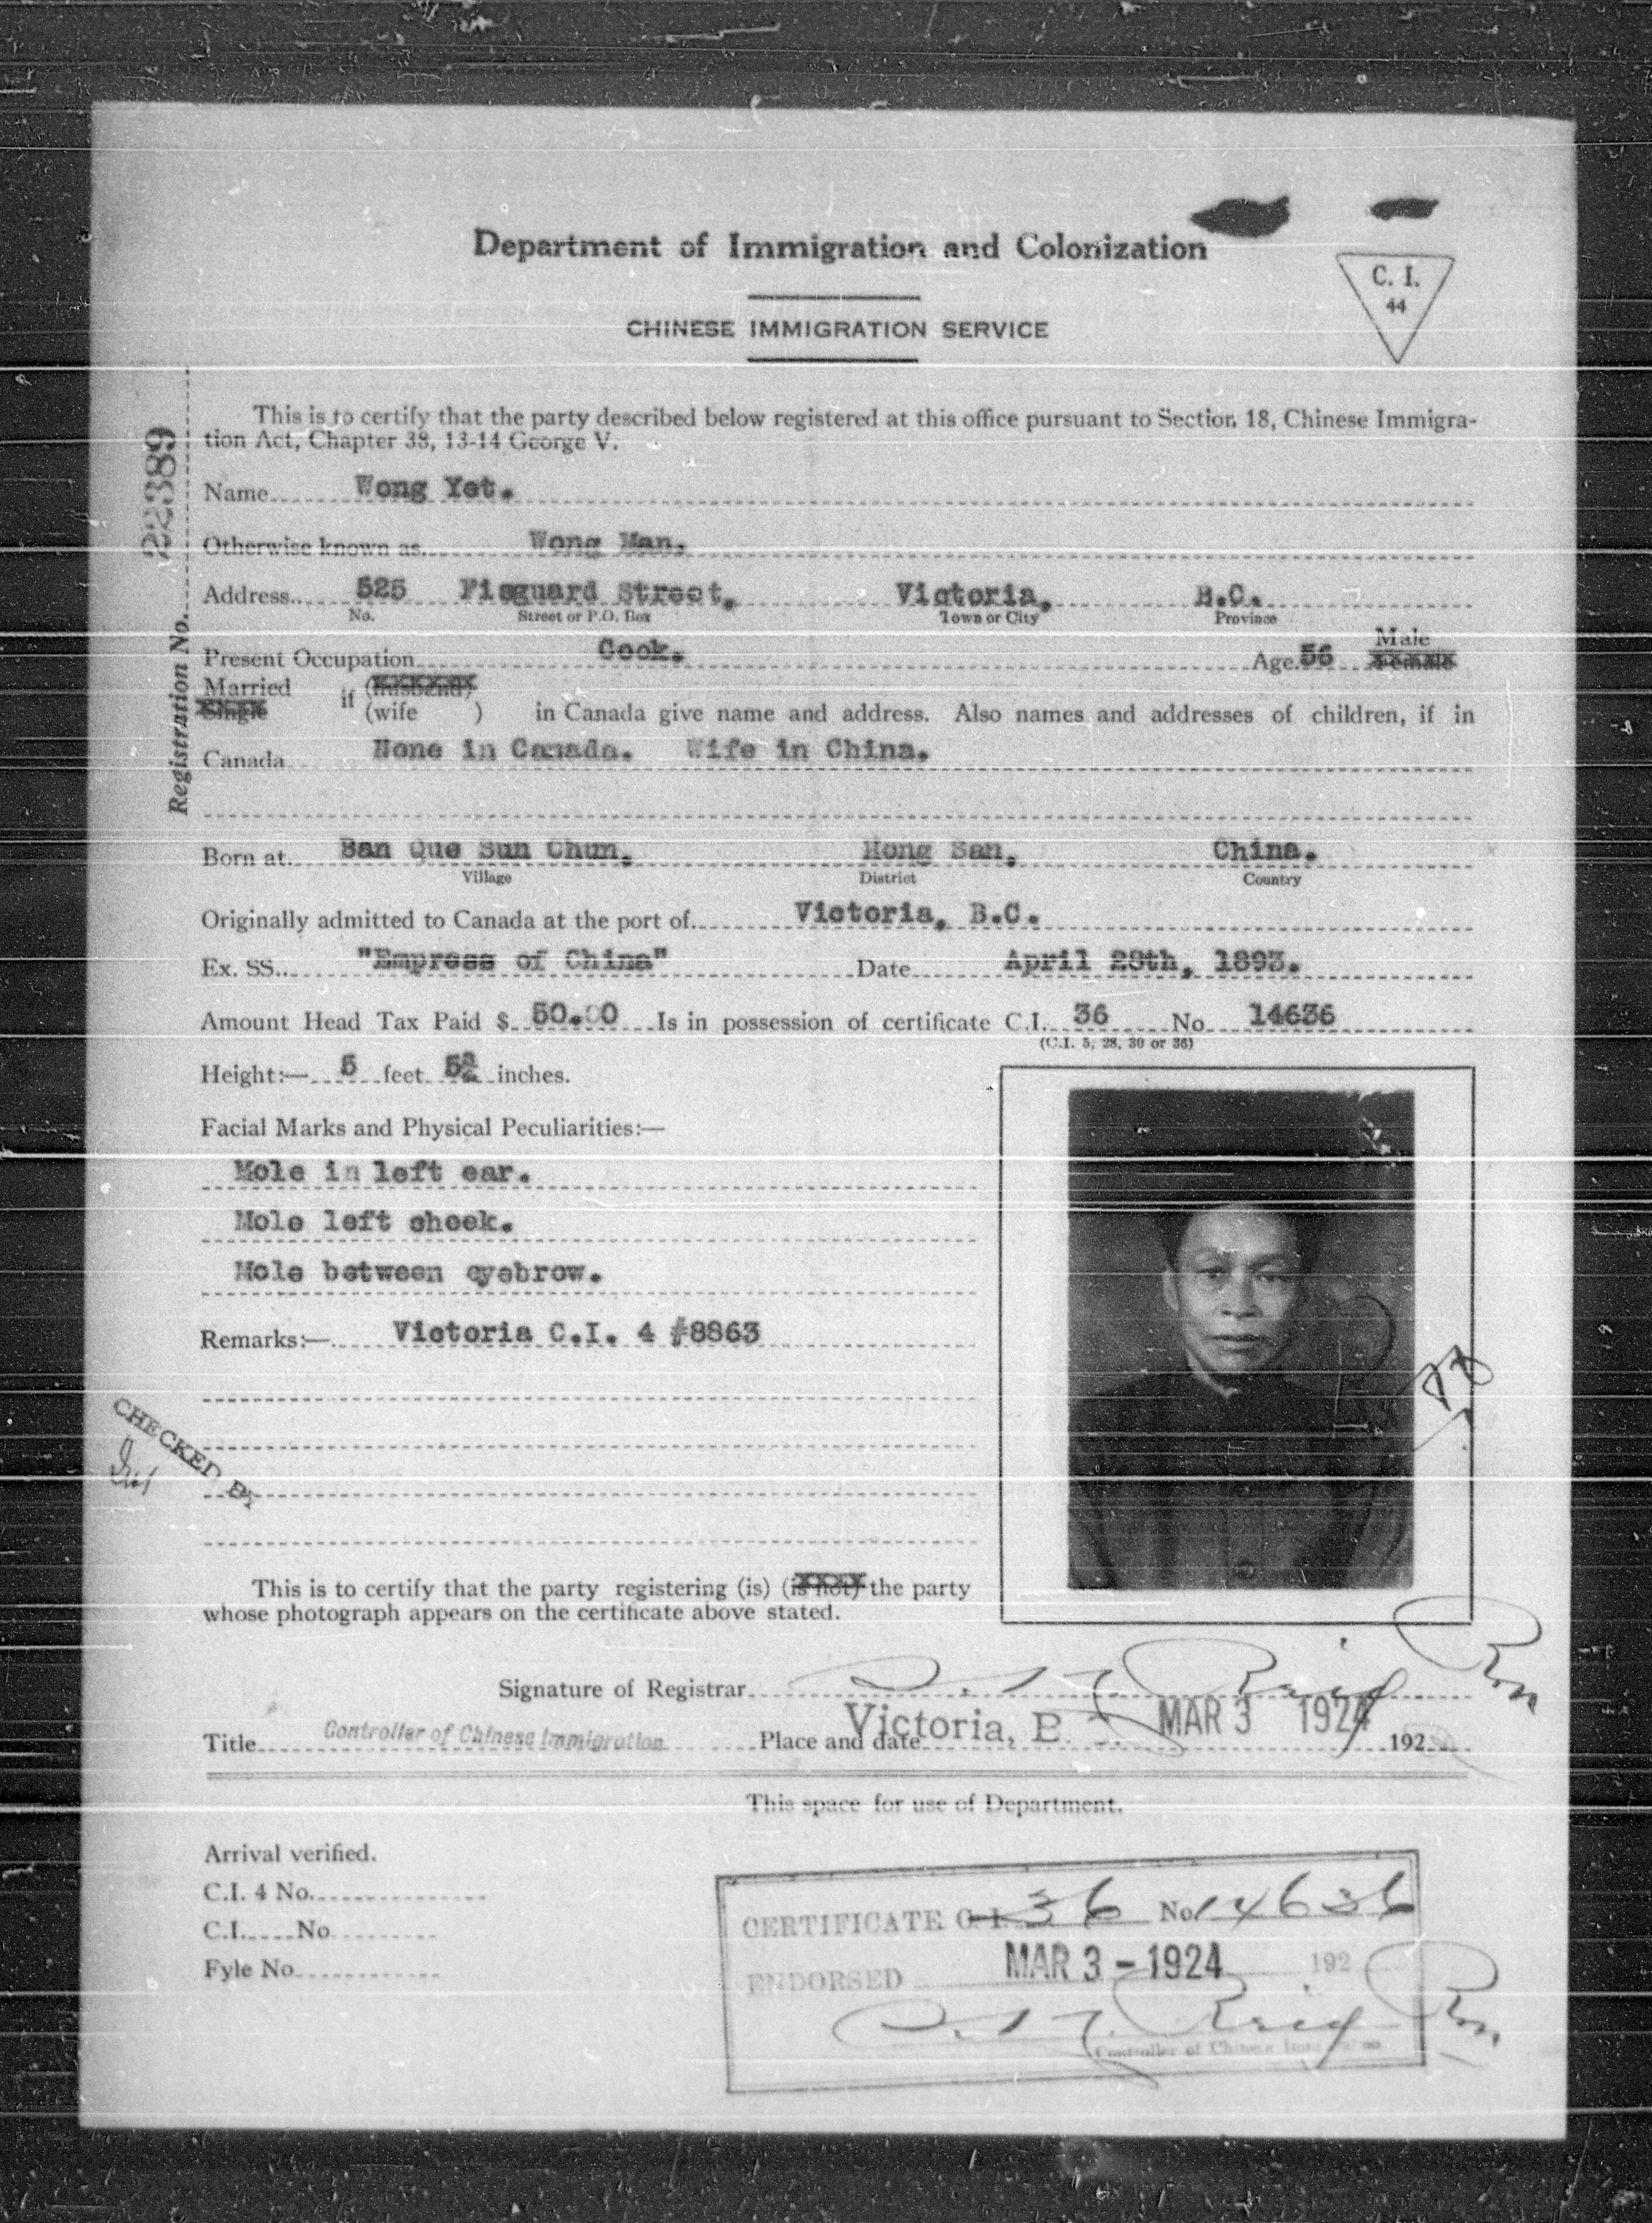 Department of Immigration and Colonization
CHINESE IMMIGRATION SERVICE
C. I.
44
Registration No. 22389
This is to certify that the party described below registered at this office pursuant to Section 18, Chinese Immigra-
tion Act, Chapter 38, 13-14 George V.
Name Wong Yet.
Otherwise known as Wong Man.
Address 525 Fisguard Street, Victoria, B.C.
No. Street or P.O. Box Town or City Province
Male
Present Occupation Cook. Age 56 Female
Married if (husband)
Single (wife ) in Canada give name and address. Also names and addresses of children, if in
Canada None in Canada. Wife in China.
Born at Ban Que Sun Chun, Hong San, China.
Village District Country
Originally admitted to Canada at the port of Victoria, B.C.
Ex. SS. "Empress of China" Date April 28th, 1893.
Amount Head Tax Paid $ 50.00 Is in possession of certificate C.I. 36 No 14636
(C.I. 5, 28, 30 or 36)
Height:— 5 feet inches.
Facial Marks and Physical Peculiarities:—
Mole in left ear.
Mole left cheek.
Mole between eyebrow.
Remarks:— Victoria C.I. 4 #8863
CHECKED BY
This is to certify that the party registering (is) (is not) the party
whose photograph appears on the certificate above stated.
Signature of Registrar
Title Controller of Chinese Immigration Place and date Victoria, B. MAR 3 1924 192
This space for use of Department.
Arrival verified.
C.I. 4 No.
C.I. No
Fyle No
CERTIFICATE C.I. 36 No 14636
ENDORSED MAR 3 - 1924 192
Controller of Chinese Immigration